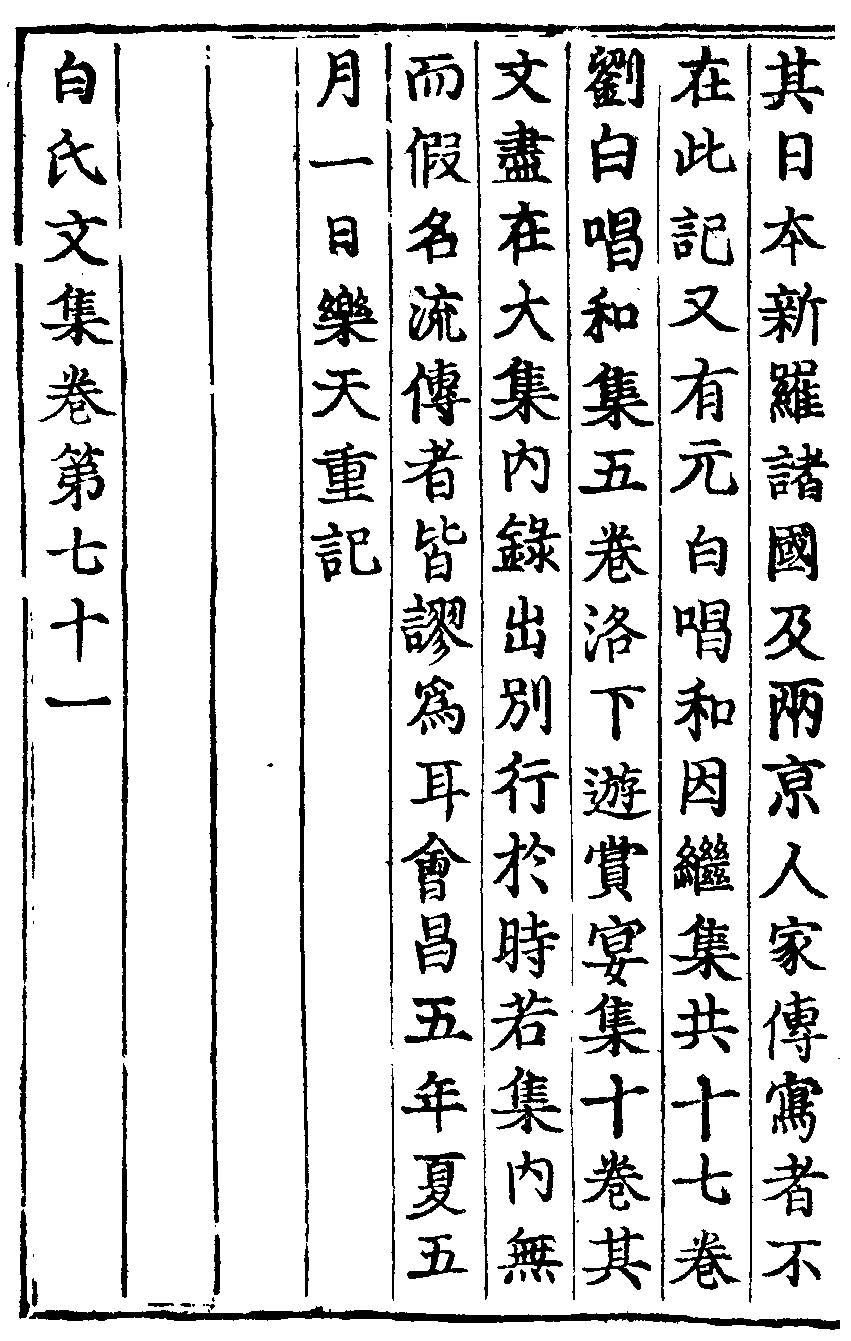 其日本新羅諸國及兩京人家傳寫者不
在此記又有元白唱和因繼集共十七卷
劉白唱和集五卷洛下遊賞宴集十卷其
文盡在大集內錄出別行於時若集內無
而假名流傳者皆謬爲耳會昌五年夏五
月一日樂天重記
白氏文集卷第七十一